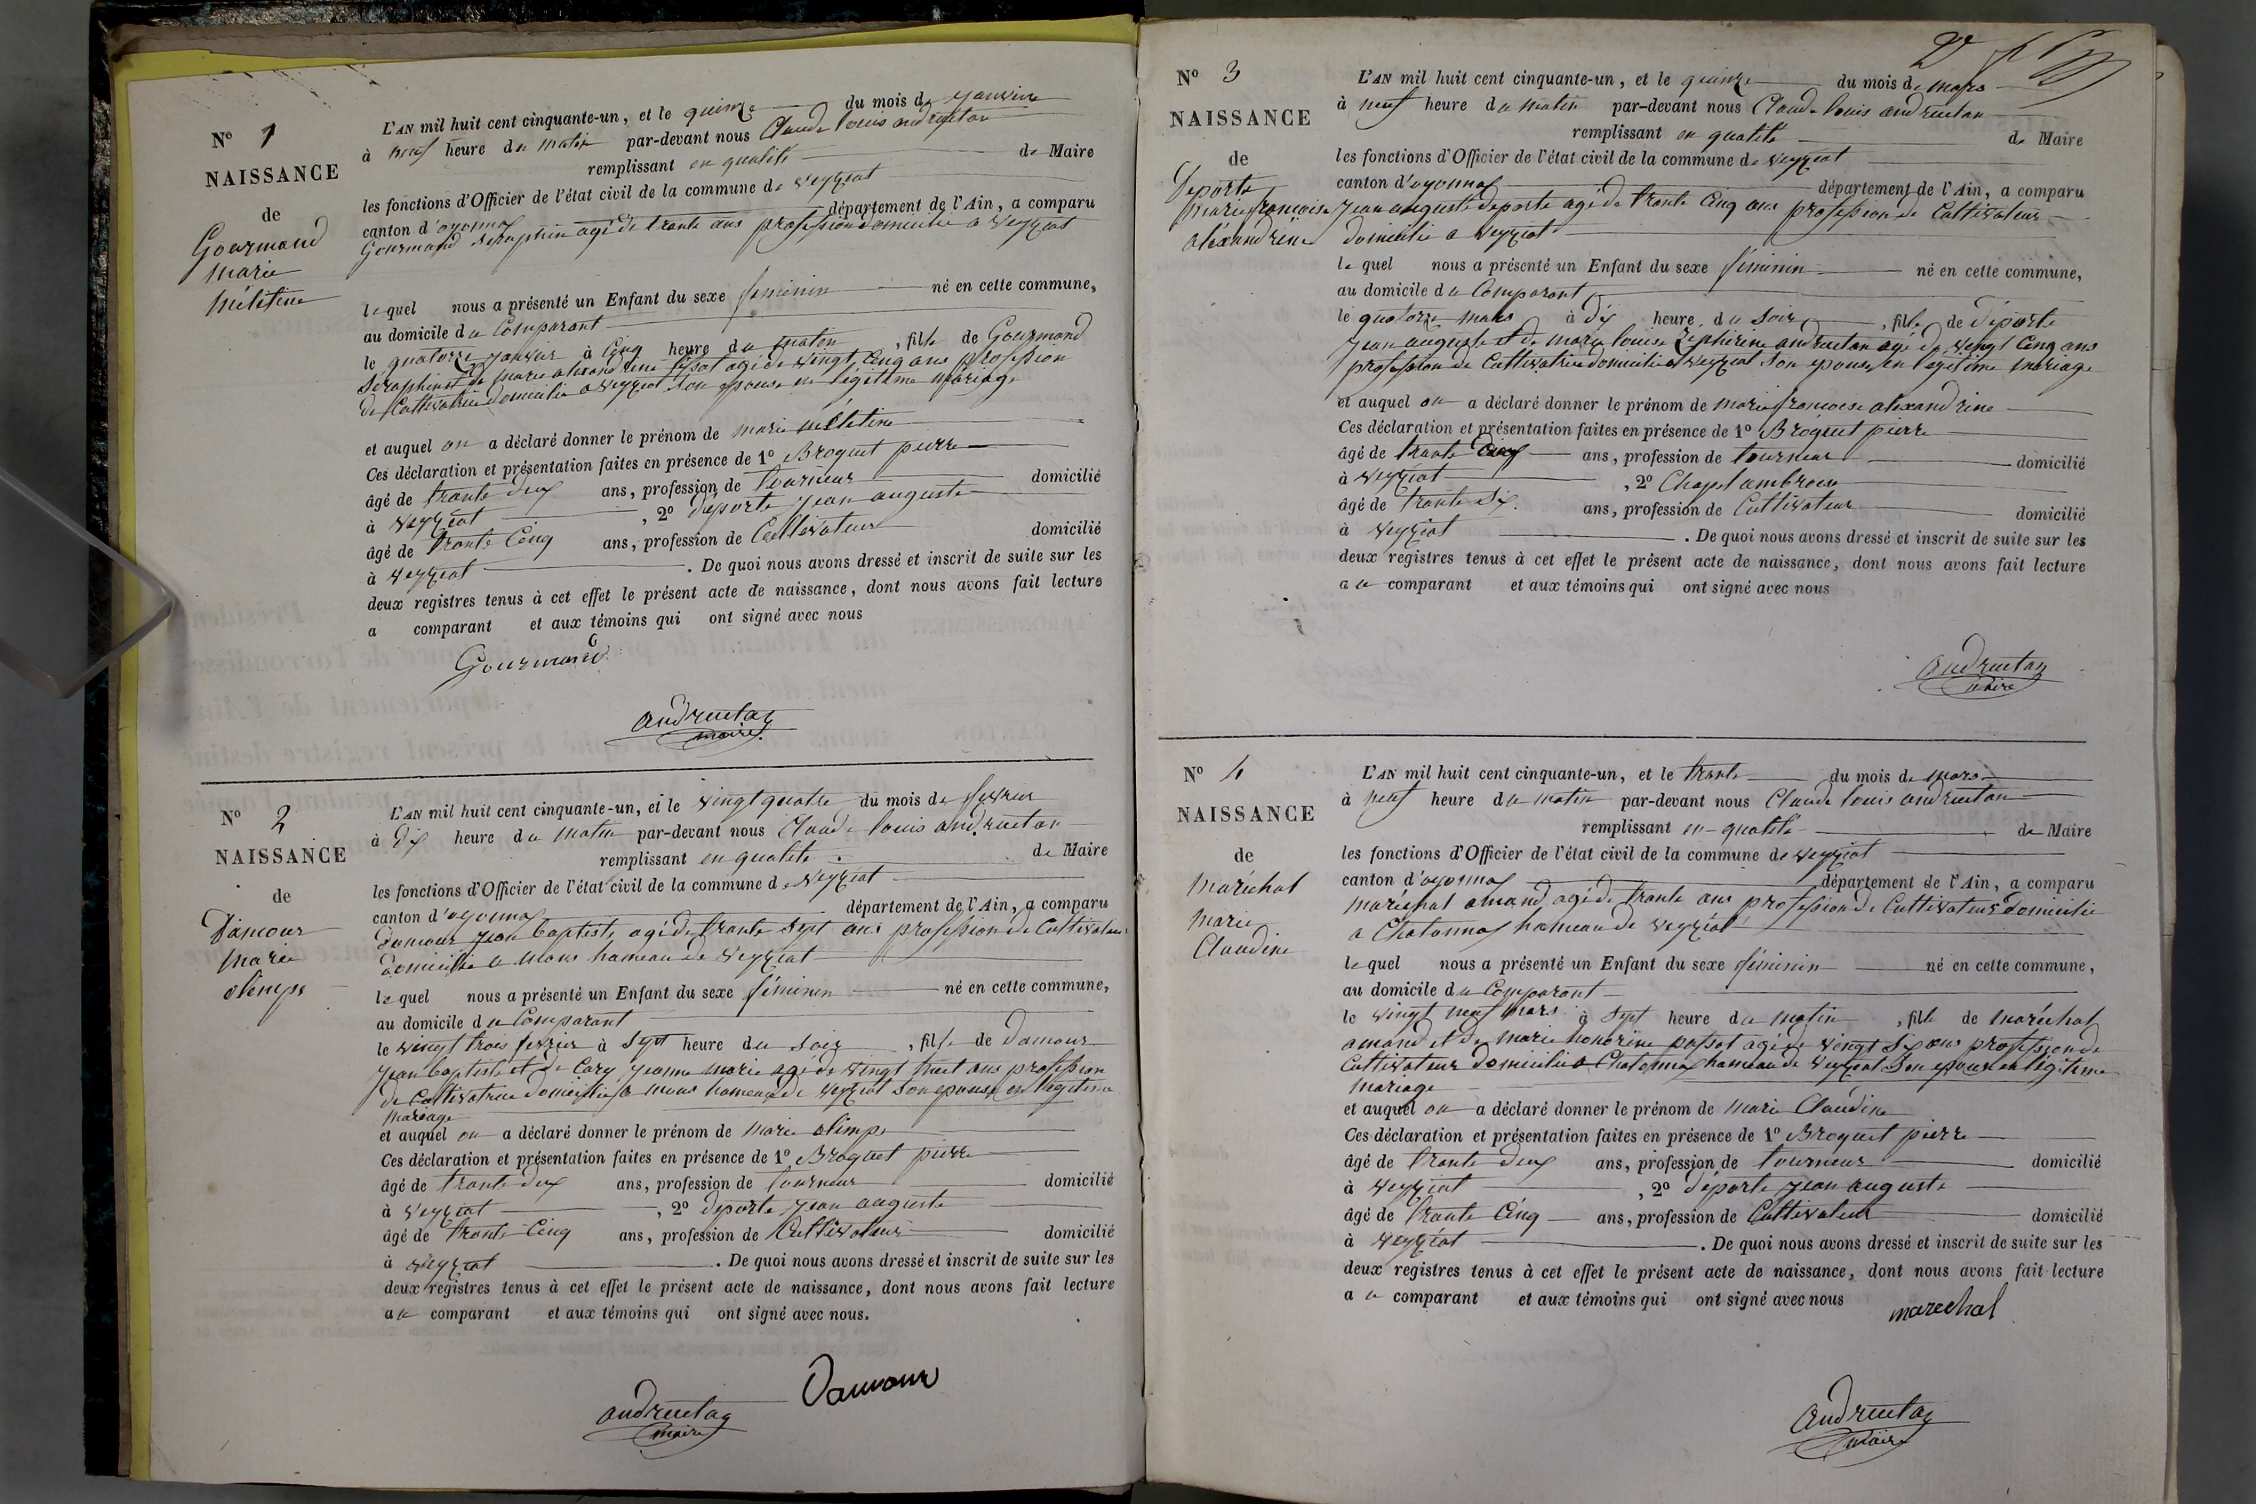 N° 1
NAISSANCE
de
Gourmand
marie
mélitine
L'AN mil huit cent cinquante-un, et le quinze du mois de janvier
à neuf heure du matin par-devant nous Claude louis andruétan
remplissant en qualité de Maire
les fonctions d'Officier de l'état civil de la commune de veyziat
canton d'oyonnax département de l'Ain, a comparu
Gourmand seraphin agé de trante ans profession domicilié a veyziat
le quel nous a présenté un Enfant du sexe féminin né en cette commune,
au domicile du Comparant
le quatorze janvier à Cinq heure du maten, fille de Gourmand
Seraphin et de marie alexandrine agé de vingt Cinq ans profession
de Cultivatrice domicilié a veyziat son epouse en légitime mariage
et auquel on a déclaré donner le prénom de marie mélitine
Ces déclaration et présentation faites en présence de 1° Broquet pierre
âgé de trante deux ans, profession de tourneur domicilié
à veyziat, 2° déporte jean auguste
âgé de trante Cinq ans, profession de Cultivateur domicilié
à veyziat. De quoi nous avons dressé et inscrit de suite sur les
deux registres tenus à cet effet le présent acte de naissance, dont nous avons fait lecture
a comparant et aux témoins qui ont signé avec nous
Gourmand
andruétan
maire
N° 2
NAISSANCE
de
Damour
marie
olimpe
L'AN mil huit cent cinquante-un, et le vingt quatre du mois de fevrier
à dix heure du matin par-devant nous Claude louis andruétan
remplissant en qualité de Maire
les fonctions d'Officier de l'état civil de la commune de veyziat
canton d'oyonnax département de l'Ain, a comparu
damour jean baptiste agé de trante sept ans profession de Cultivateur
domicilié a mons hameau de veyziat
le quel nous a présenté un Enfant du sexe féminin né en cette commune,
au domicile du Comparant
le vingt trois fevrier à sept heure du soir, fille de damour
jean baptiste et de Cary jeanne marie agé de vingt huit ans profession
de Cultivatrice domicilié a mons hameau de veyziat son epouse en légitime
mariage
et auquel on a déclaré donner le prénom de marie olimpe
Ces déclaration et présentation faites en présence de 1° Broquet pierre
âgé de trante deux ans, profession de tourneur domicilié
à veyziat, 2° déporte jean auguste
âgé de trante Cinq ans, profession de Cultivateur domicilié
à veyziat. De quoi nous avons dressé et inscrit de suite sur les
deux registres tenus à cet effet le présent acte de naissance, dont nous avons fait lecture
au comparant et aux témoins qui ont signé avec nous.
Damour
andruétan
maire
N° 3
NAISSANCE
de
Deporte
marie françoise
aléxandrine
L'AN mil huit cent cinquante-un, et le quinze du mois de mars
à neuf heure du matin par-devant nous Claude louis andruétan
remplissant en qualité de Maire
les fonctions d'Officier de l'état civil de la commune de veyziat
canton d'oyonnax département de l'Ain, a comparu
jean auguste deporte agé de trante Cinq ans profession de Cultivateur
domicilié a veyziat
le quel nous a présenté un Enfant du sexe féminin né en cette commune,
au domicile du Comparant
le quatorze mars à dix heure du soir, fille de déporte
jean auguste et de marie louise Zéphirine andruétan agé de vingt Cinq ans
profession de Cultivatrice domicilié a veyziat son epouse en légitime mariage
et auquel on a déclaré donner le prénom de marie françoise alexandrine
Ces déclaration et présentation faites en présence de 1° Broquet pierre
âgé de trante deux ans, profession de tourneur domicilié
à veyziat, 2° Chapel ambroise
âgé de trante six ans, profession de Cultivateur domicilié
à veyziat. De quoi nous avons dressé et inscrit de suite sur les
deux registres tenus à cet effet le présent acte de naissance, dont nous avons fait lecture
au comparant et aux témoins qui ont signé avec nous
andruétan
maire
N° 4
NAISSANCE
de
maréchal
marie
Claudine
L'AN mil huit cent cinquante-un, et le trante du mois de mars
à neuf heure du matin par-devant nous Claude louis andruétan
remplissant en qualité de Maire
les fonctions d'Officier de l'état civil de la commune de veyziat
canton d'oyonnax département de l'Ain, a comparu
maréchal amand agé de trante ans profession de Cultivateur domicilié
a Chatonnax hameau de veyziat
le quel nous a présenté un Enfant du sexe féminin né en cette commune,
au domicile du Comparant
le vingt neuf mars à sept heure du matin, fille de maréchal
amand et de marie honorine passot agé de vingt six ans profession de
Cultivateur domicilié a Chatonnax hameau de veyziat son epouse en légitime
mariage
et auquel on a déclaré donner le prénom de marie Claudine
Ces déclaration et présentation faites en présence de 1° Broquet pierre
âgé de trante deux ans, profession de tourneur domicilié
à veyziat, 2° déporte jean auguste
âgé de trante Cinq ans, profession de Cultivateur domicilié
à veyziat. De quoi nous avons dressé et inscrit de suite sur les
deux registres tenus à cet effet le présent acte de naissance, dont nous avons fait lecture
au comparant et aux témoins qui ont signé avec nous
marechal
andruétan
maire